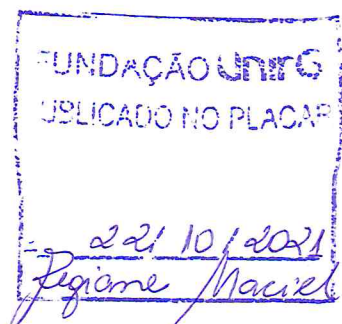 FUNDAÇÃO UnirG
PUBLICADO NO PLACAR
22/10/2021
Regiane Maciel